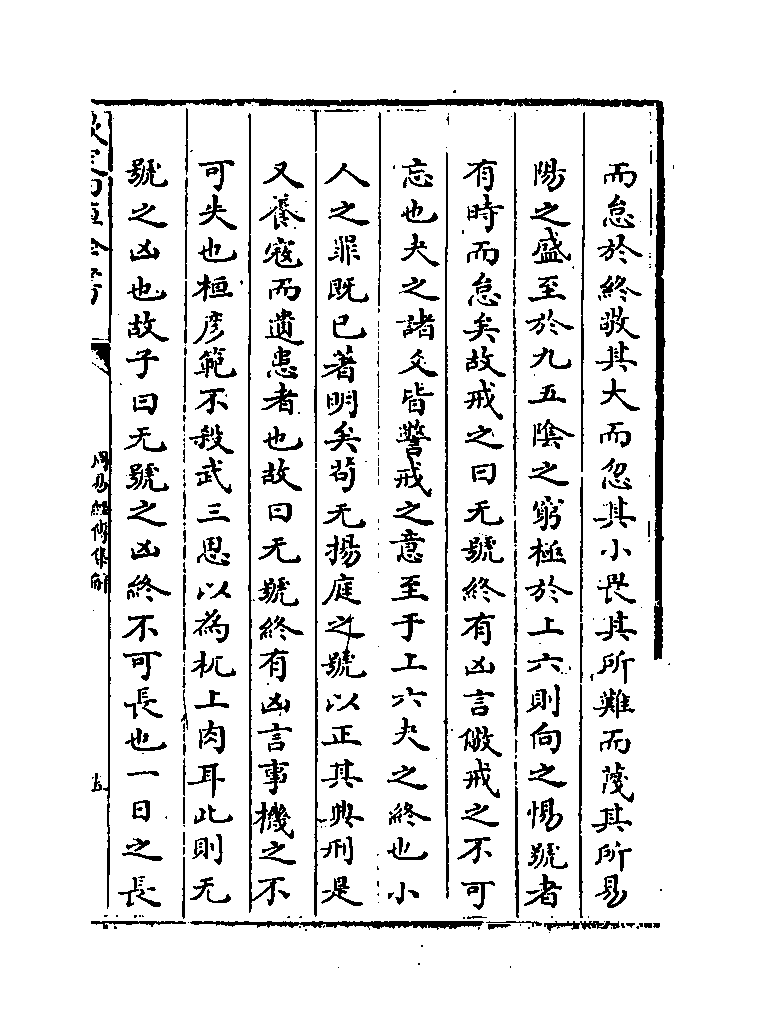 而怠於終敬其大而忽其小畏其所難而蔑其所易
陽之盛至於九五陰之窮極於上六則向之惕號者
有時而怠矣故戒之曰无號終有凶言儆戒之不可
忘也夬之諸爻皆警戒之意至于上六夬之終也小
人之罪既已著明矣茍无揚庭之號以正其典刑是
又養寇而遺患者也故曰无號終有凶言事機之不
可失也桓彥範不殺武三思以為机上肉耳此則无
號之凶也故子曰无號之凶終不可長也一日之長
周易經傳集解